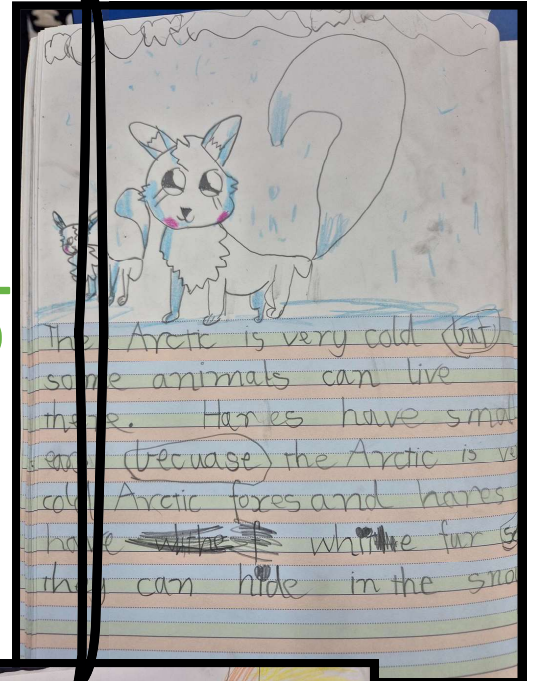 The Arctic is very cold but
some animals can live
there. Hares have smal
ears becuase the Arctic is ve
cold Arctic foxes and hares
have white fur so
they can hide in the sno